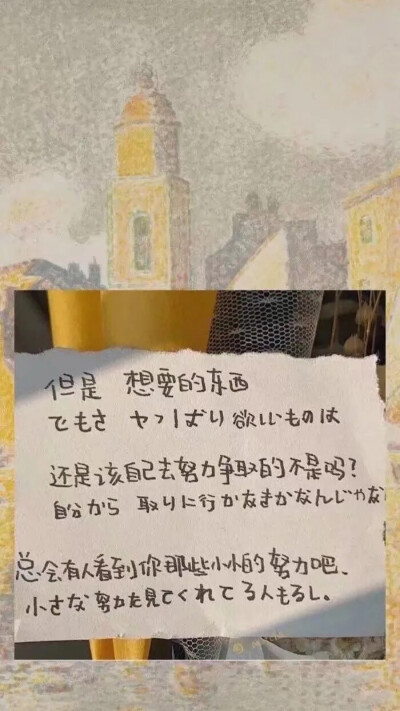 但是 想要的东西
でもさ ヤっぱり欲しいものは
还是该自己去努力争取的不是吗?
自分から 取りに行かなまかなんじゃな
总会有人看到你那些小小的努力吧、
小さな努力を見てくれてる人もるし。